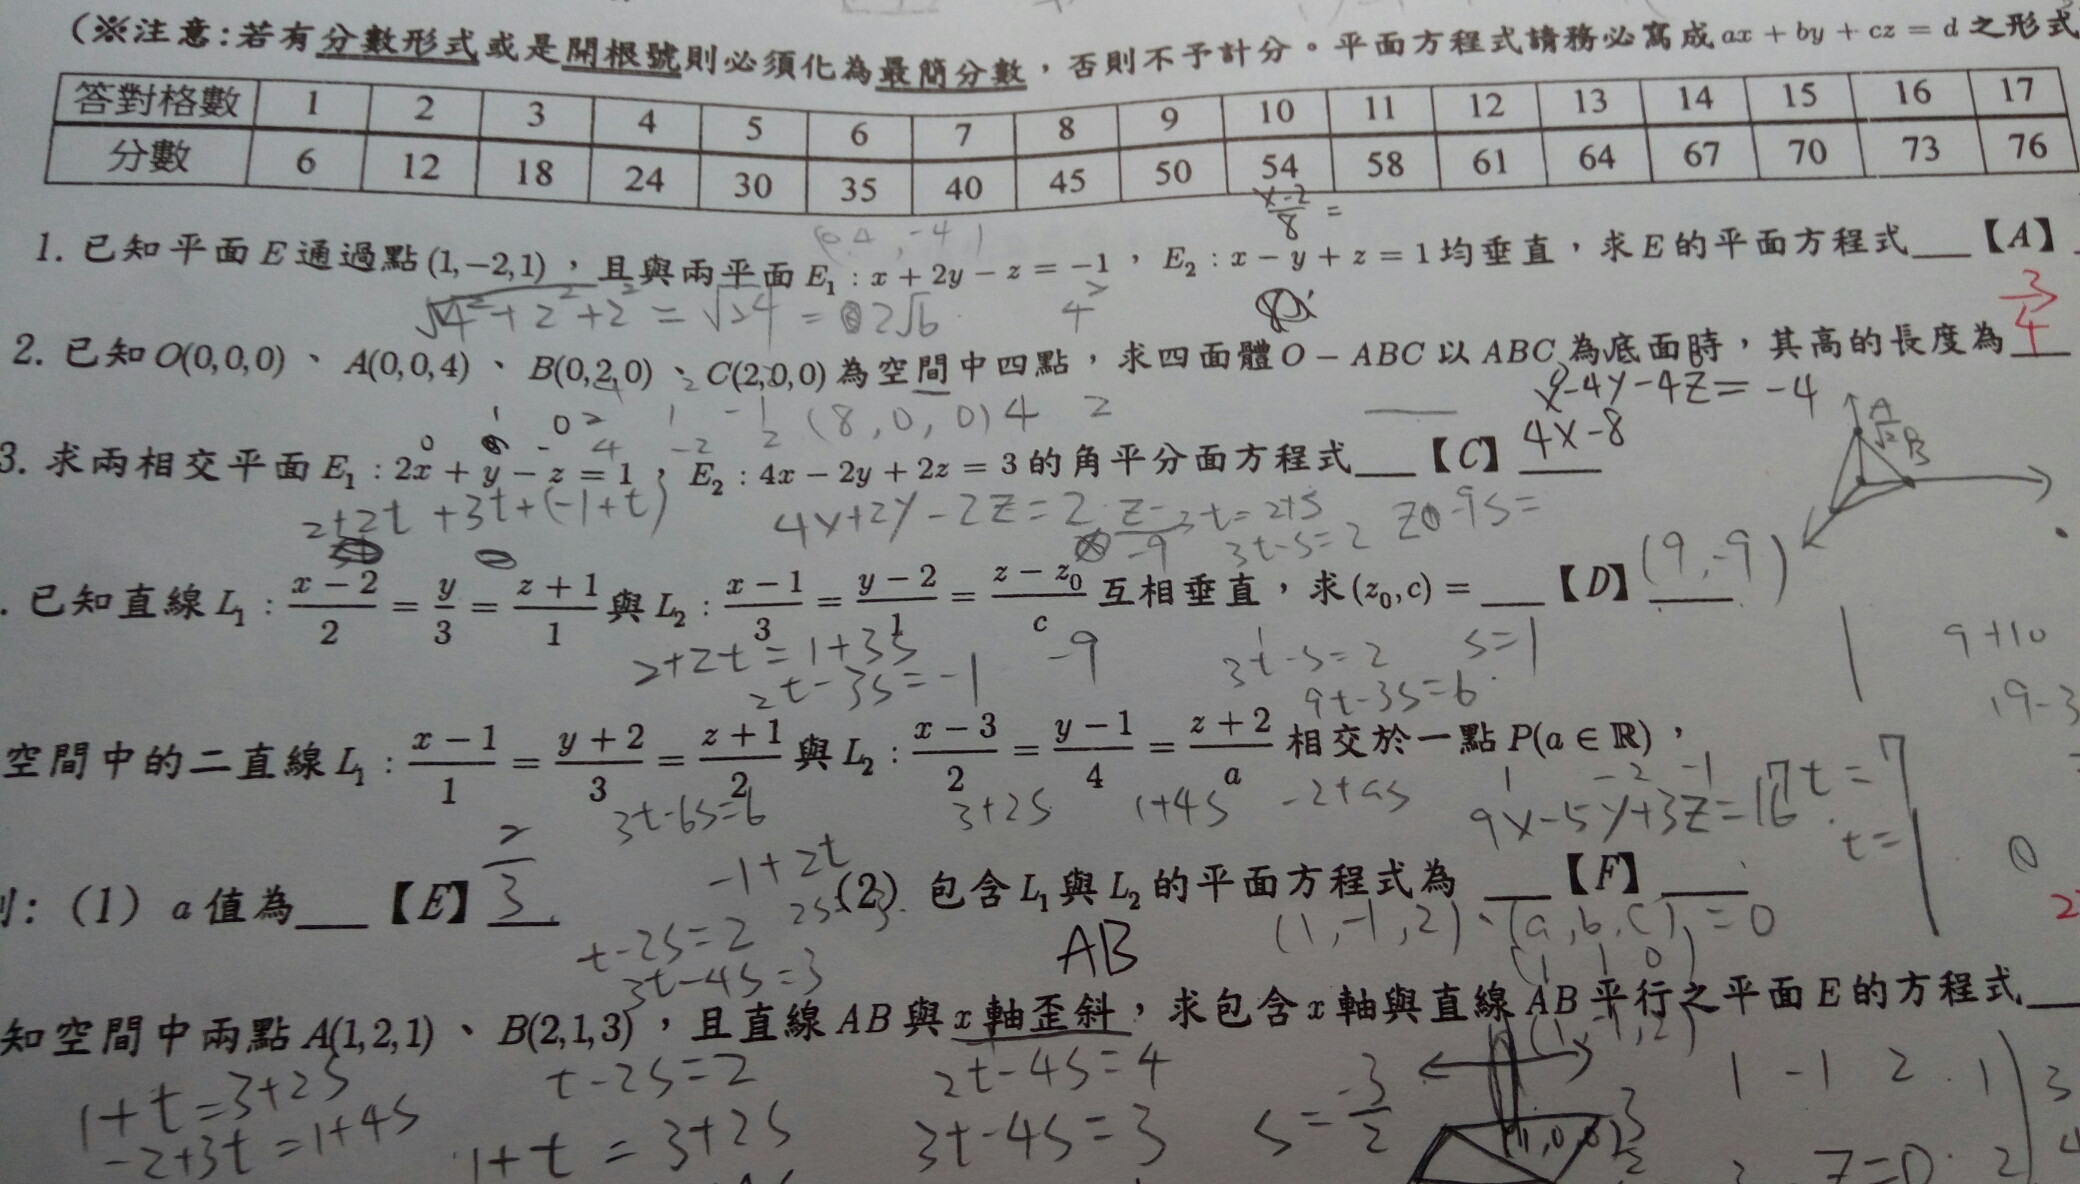 (※注意:若有分數形式或是開根號則必須化為最簡分數,否則不予計分。平面方程式請務必寫成 ax + by + cz = d 之形式
答對格數 1 2 3 4 5 6 7 8 9 10 11 12 13 14 15 16 17
分數 6 12 18 24 30 35 40 45 50 54 58 61 64 67 70 73 76
1. 已知平面 E 通過點 (1,−2,1),且與兩平面 E₁ : x + 2y − z = −1, E₂ : x − y + z = 1 均垂直,求 E 的平面方程式___【A】
√4²+2²+2² = √24 = 2√6
2. 已知 O(0,0,0)、A(0,0,4)、B(0,2,0)、C(2,0,0) 為空間中四點,求四面體 O − ABC 以 ABC 為底面時,其高的長度為 3/4
(8,0,0) 4 2
-4y-4z=-4
3. 求兩相交平面 E₁ : 2x + y − z = 1, E₂ : 4x − 2y + 2z = 3 的角平分面方程式___【C】 4x-8
2+2t+3t+(-1+t)
4x+2y-2z=2
3t=2+s
3t-s=2
. 已知直線 L₁ : (x−2)/2 = y/3 = (z+1)/1 與 L₂ : (x−1)/3 = (y−2)/1 = (z−z₀)/c 互相垂直,求 (z₀,c) = ___【D】 (9,-9)
2+2t=1+3s
-9
3t-s=2
s=1
9+10
2t-3s=-1
9t-3s=6
19-3
空間中的二直線 L₁ : (x−1)/1 = (y+2)/3 = (z+1)/2 與 L₂ : (x−3)/2 = (y−1)/4 = (z+2)/a 相交於一點 P(a ∈ ℝ),
3t-6s=6
3+2s
1+4s
-2+as
1 -2 -1
9x-5y+3z=16
7t=7
t=1
-1+2t
: (1) a 值為___【E】 2/3 (2) 包含 L₁ 與 L₂ 的平面方程式為 ___【F】
t-2s=2
3t-4s=3
AB
(1,-1,2)·(a,b,c)=0
(1 1 0)
知空間中兩點 A(1,2,1)、B(2,1,3),且直線 AB 與 x 軸歪斜,求包含 x 軸與直線 AB 平行之平面 E 的方程式___
(1,-1,2)
1+t=3+2s
t-2s=2
2t-4s=4
1 -1 2 1
-2+3t=1+4s
1+t=3+2s
3t-4s=3
s=-3/2